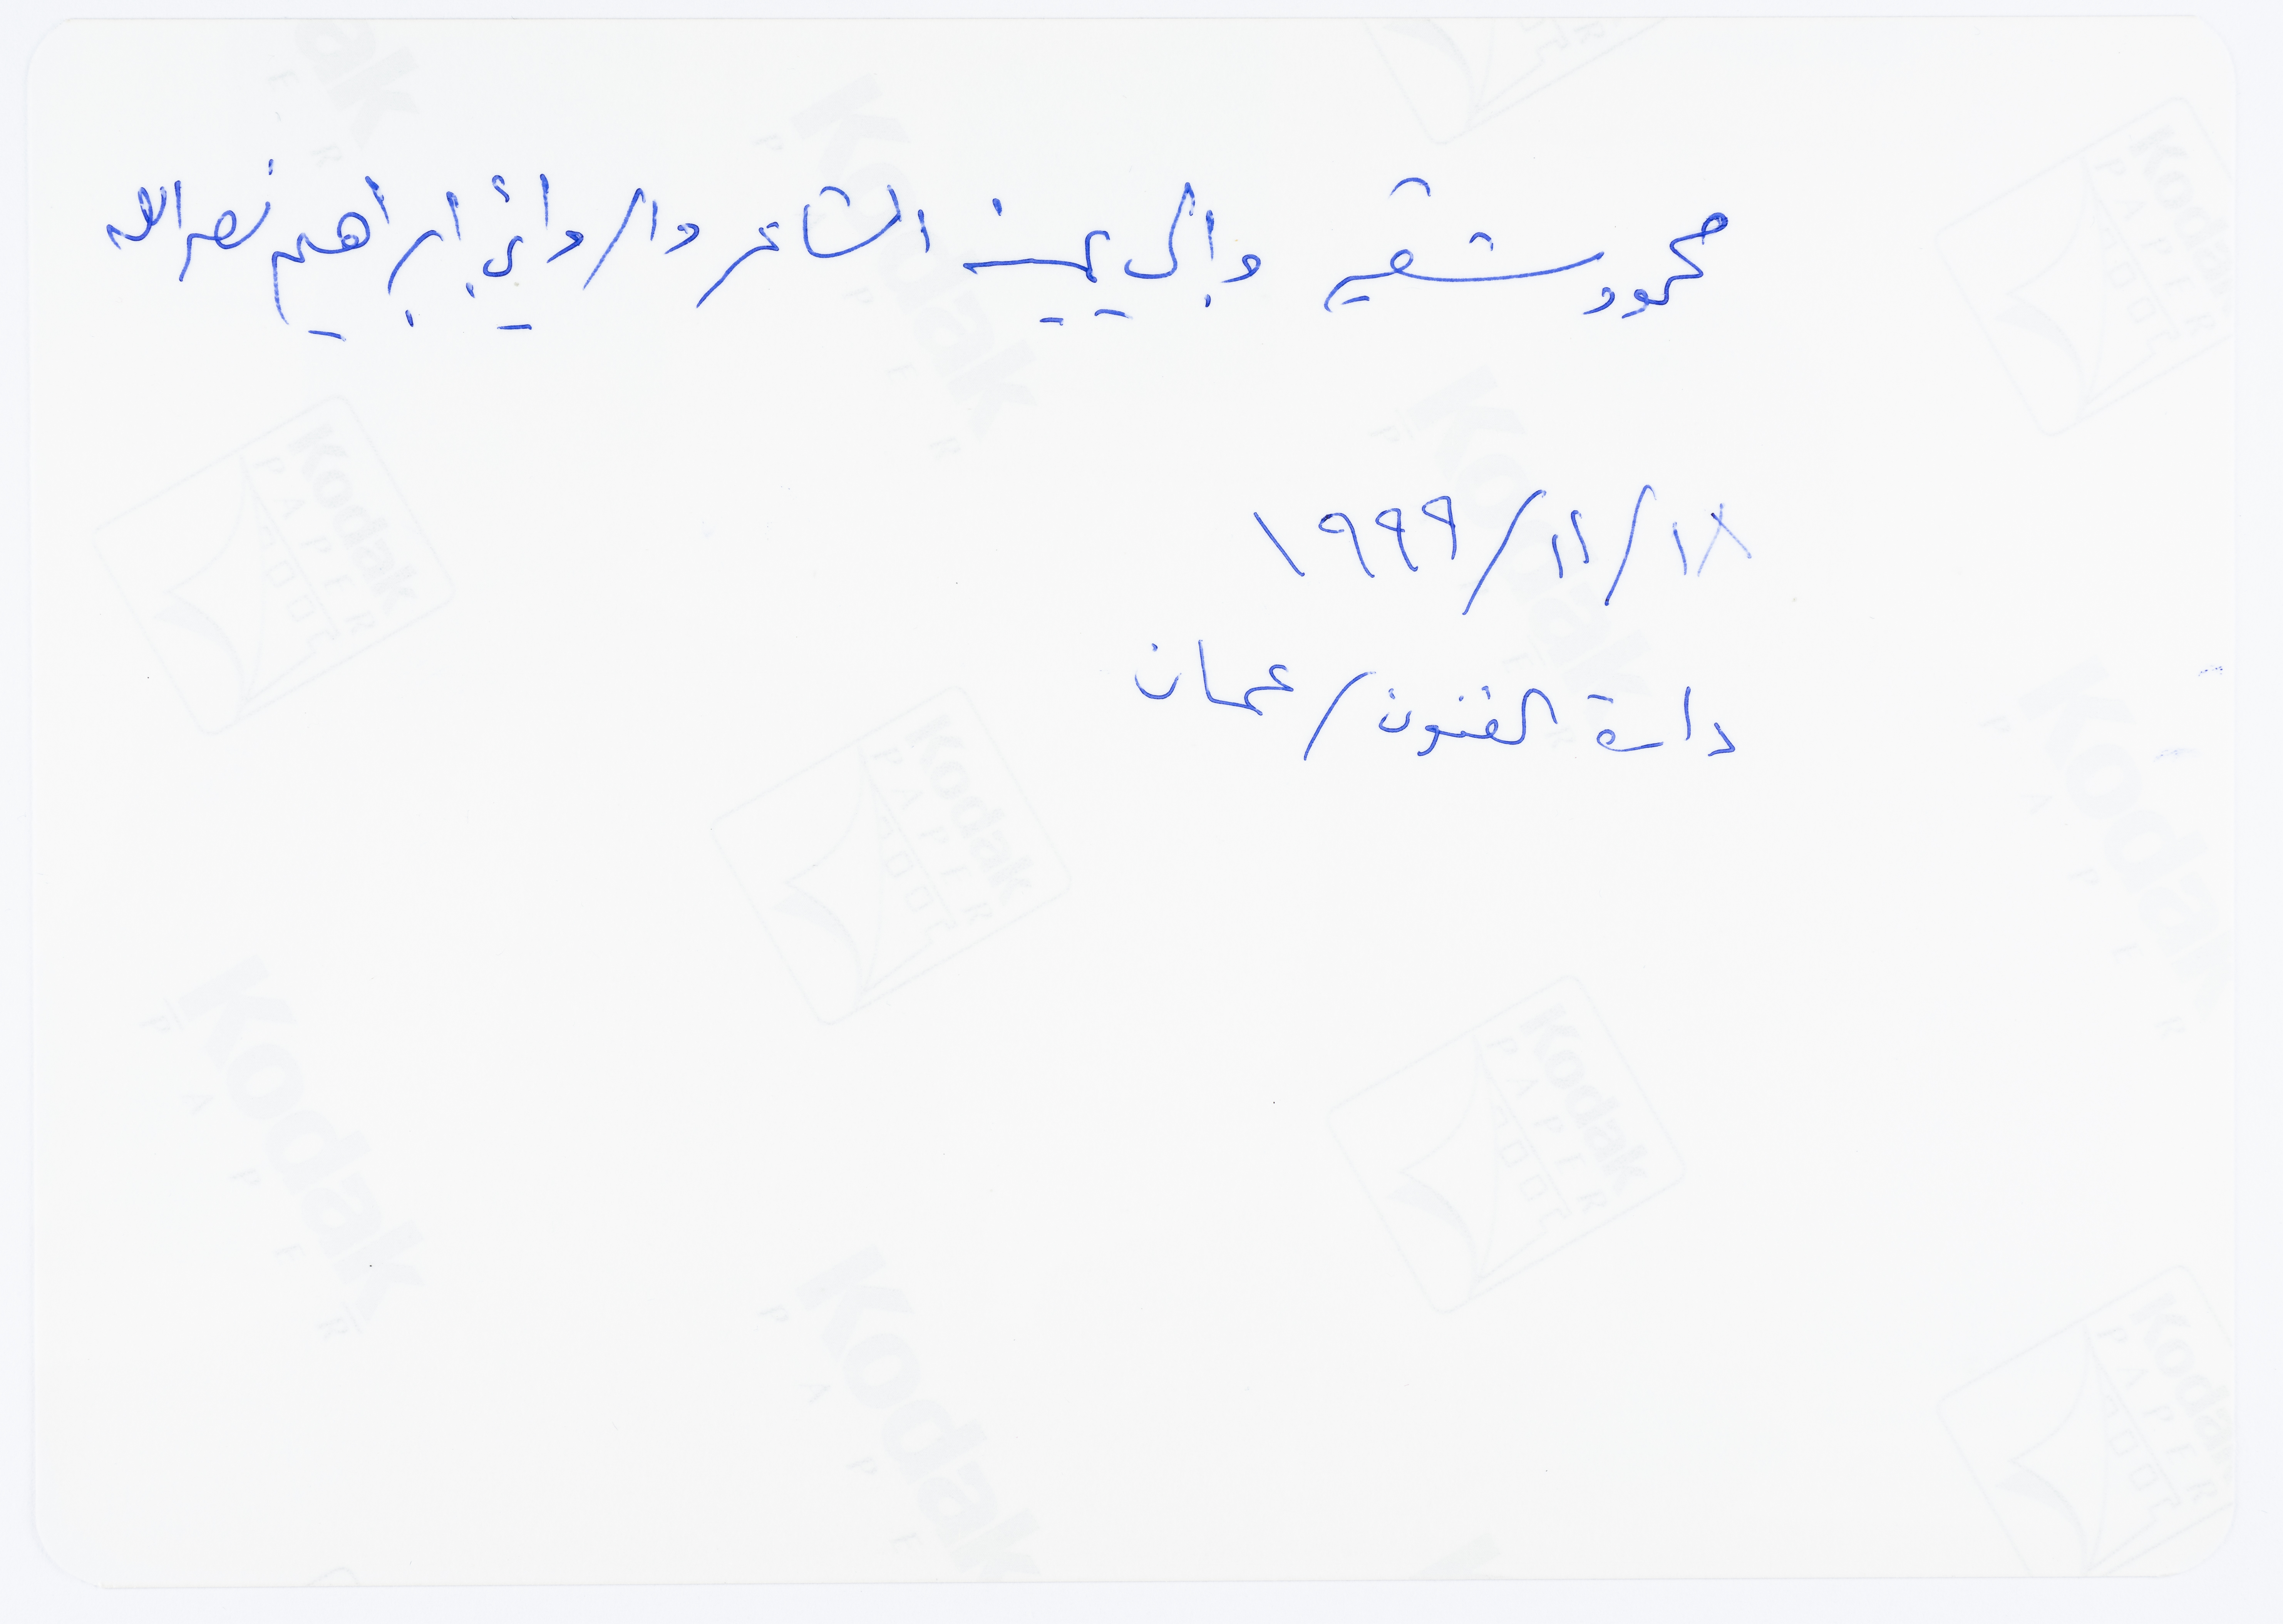 محمود شقير وإلى يمينه الشاعر والروائي إبراهيم نصرالله
١٩٩٩/١١/١٨
دارة الفنون/عمان
Kodak
PAPER